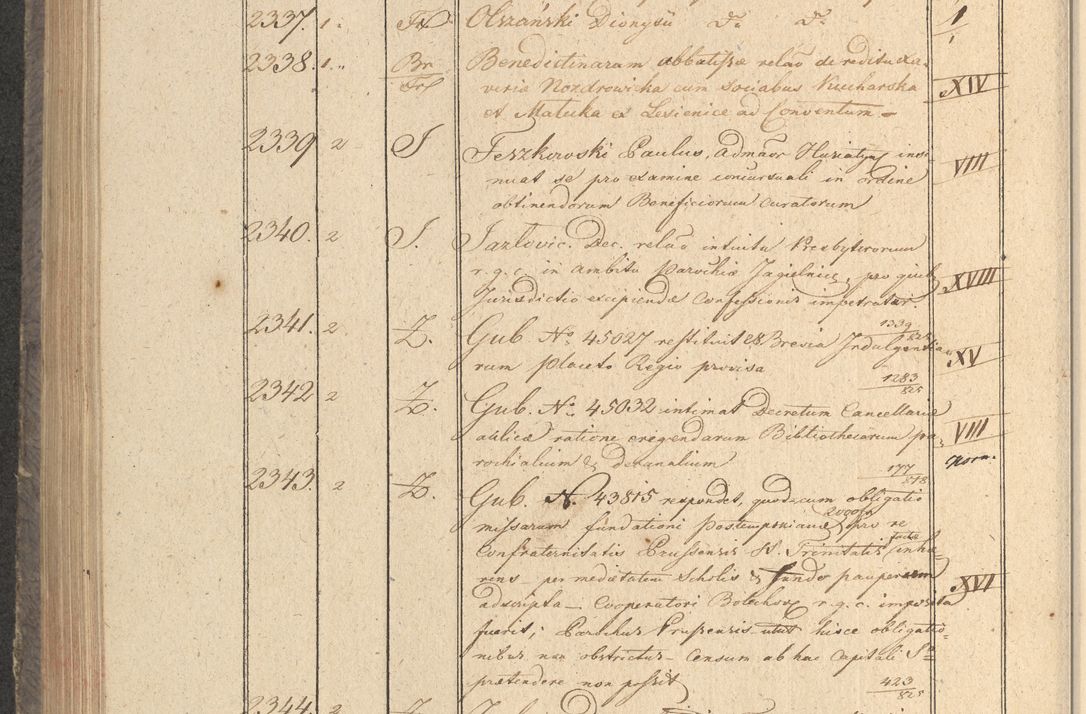 2337. 1. Fr Olszański Dionysii do do 1
2338. 1. Br Benedictinarum abbatissæ relão de reditu Xa-
Frl veriæ Nozdrowicka cum sociabus Kucharska XIV
et Matuka ex Lesienice ad Conventum
2339 2 S Feszkorski Paulus, Admãor Husiatyn insi-
nuat se pro examine concursuali in ordine VIII
obtinendorum Beneficiorum Curatorum
2340. 2 S. Jazlovic. Dec. relão intuitu Presbyterorum
r. g. c. in ambitu Parochiæ Jagielnice, pro quib XVIII
Jurisdictio excipiendæ Confessionis impetratur.
2341. 2. Z. Gub. No 45027 restituit 28 Brevia Indulgentia- 1339/825
rum placeto Regio provisa XV
1283/825
2342 2 Z. Gub. No 45032 intimat Decretum Cancellariæ
aulicæ ratione erigendarum Bibliothecarum pa- VIII
rochialium & decanalium Norm.
177/818
2343. 2 Z. Gub. N. 43815 respondet, quod cum obligatio
missarum fundationi Postempskianæ 2000 f pro re
Confraternitatis Prussensis SS. Trinitatis factæ inhæ-
rens per medietatem Scholis & fundo pauperum XVI
adscripta Cooperatori Bolechov r. g. c. imposita
fuerit; Parochus Prussensis utut hisce obligatio-
nibus non obstrictus censum ab hac Capitali Sa
prætendere non possit
423/825
2344. 2